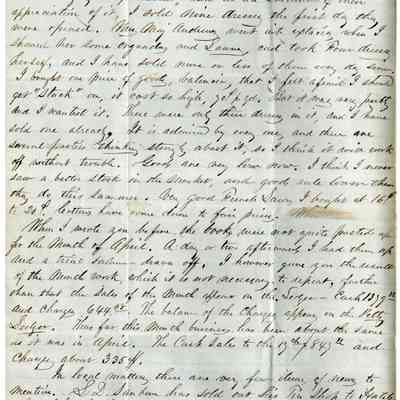 appreciation of it. I sold nine dresses the first day they
were opened. Mrs. May Andrews went into ecstasies when I
showed her some organdy and Lawns, and took Four dresses
herself, and I have sold more or less of them every day since
I bought one piece of goods, valencia, that I felt afraid I should
get "Stuck" on, it cost so high, but it was very pretty
and I wanted it. There were only three dresses in it, and I have
sold one already. It is admired by every one, and there are
several parties thinking strongly about it, so I think it will work
off without trouble. Goods are very low now. I think I never
saw a better stock in the market, and goods rule lower than
they do this summer. Very good French Lawn, I bought at 16
to 20¢ Cottons have come down to fair price.
When I wrote you before, the books were not quite posted up
for the Month of April. A day or two afterwards I had them up
and a trial balance drawn off. I however gave you the result
of the Month work, which it is not necessary to repeat, further
than that the Sales of the Month appear on the Ledger Cash 1319
and Charge 644. The balance of the Charges appear on the Petty
Ledger. Thus far this Month business has been about the same
as it was in April. The Cash Sales to the 19th of 847 and
Charge about 335
In local matters there are very few items of news to
mention. L.D. has sold out his Tin Shop to